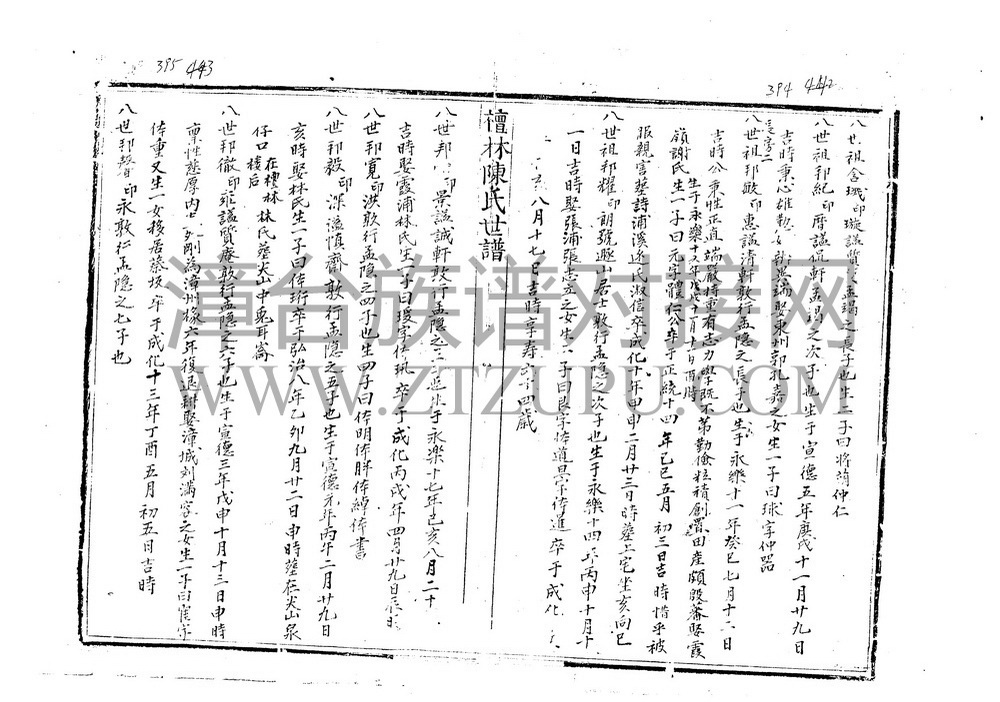 394 442
八世祖念璣印璇謚質夫孟瑒之長子也生二子曰將蘭仲仁
八世祖邦紀印曆謚 軒孟瑒之次子也生于宣德五年庚戌十一月廿九日
吉時秉心雄 娶東州郭孔嘉之女生一子曰球字仲器
長房二
八世祖邦敬印惠謚清軒敦行孟隱之長子也生于永樂十一年癸巳七月十二日
吉時公秉性正直端嚴持重有志力學既不第勤儉粒積創置田產頗殷蕃娶霞
生于永樂十六年戊戌十月十日酉時
嶺謝氏生一子曰元字體仁公卒于正統十四年己巳五月初三日吉時惜乎被
服親害葬詩浦溪 氏淑信卒成化十年甲申二月廿三日時葬上宅坐亥向巳
八世祖邦耀印朗號遯山居士敦行孟隱之次子也生于永樂十四年丙申十月十
一日吉時娶張浦張志立之女生二子曰良字俸道昂字俸進卒于成化
八月十七日吉時享壽六十四歲
檀林陳氏世譜
395 443
八世邦 印景謚誠軒敦行孟隱之三子也生于永樂十七年己亥八月二十
吉時娶霞浦林氏生一子曰璦字俸珮卒于成化丙戌年四月廿九日辰時
八世邦寬印洪敦行孟隱之四子也生四子曰俸明俸胖俸綽俸書
八世邦毅印深謚慎齋敦行孟隱之五子也生于宣德元年丙午二月廿九日
亥時娶林氏生一子曰俸珩卒于弘治八年乙卯九月廿二日申時葬在尖山泉
仔口在檀林樓后林氏葬尖山中兔耳崙
八世邦徹印雍謚質療敦行孟隱之六子也生于宣德三年戊申十月十三日申時
稟性慈厚內 剛為漳州掾六年復退耕娶漳城刘滿容之女生一子曰 字
俸重又生一女移居蔡坂卒于成化十三年丁酉五月初五日吉時
八世邦聲印永敦行孟隱之七子也
漳台族谱对接网
WWW.ZTZUPU.COM